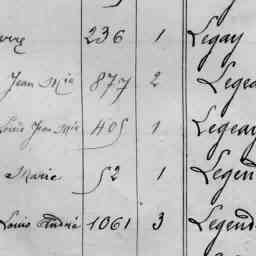 236 1 Legay
Jean Mie 877 2 Legea
Louis Jean Mie 405 1 Legeay
Marie 52 1 Legend
Louis André 1061 3 Legend